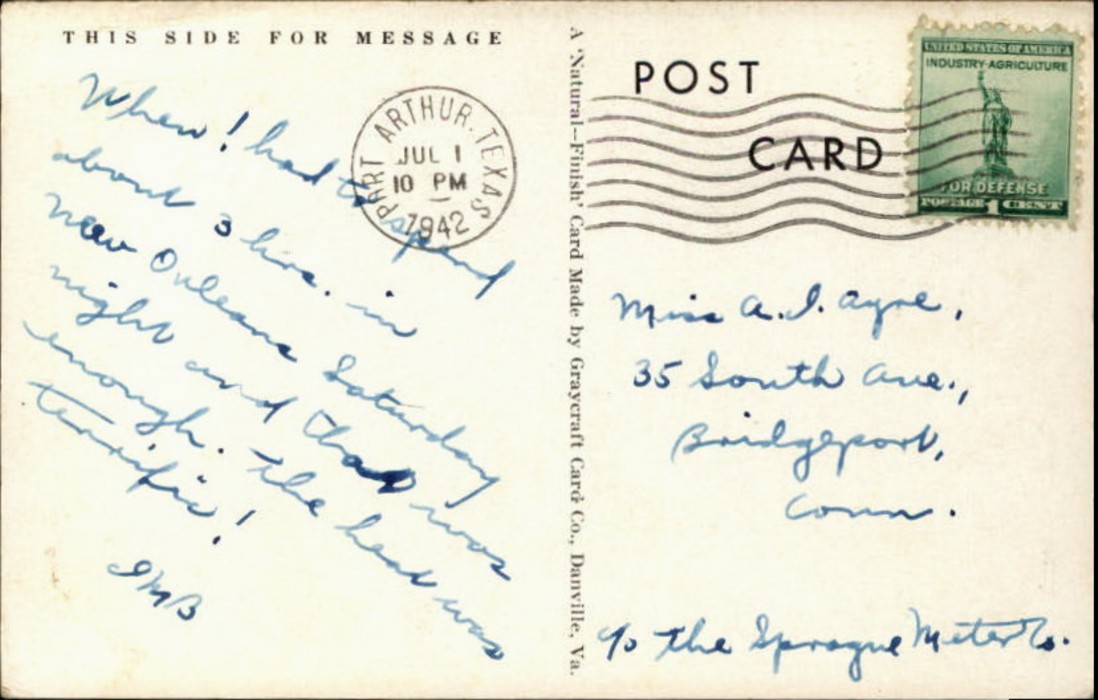 THIS SIDE FOR MESSAGE
When I had to spend
about 3 hrs. in
New Orleans Saturday
night and that was
enough. The heat was
terrific!
IMB
PORT ARTHUR, TEXAS
JUL 1
10 PM
1942
A 'Natural-Finish' Card Made by Graycraft Card Co., Danville, Va.
POST
CARD
UNITED STATES OF AMERICA
INDUSTRY-AGRICULTURE
FOR DEFENSE
POSTAGE 1 CENT
Miss A. I. Ayre,
35 South Ave.,
Bridgeport,
Conn.
c/o The Sprague Meter Co.